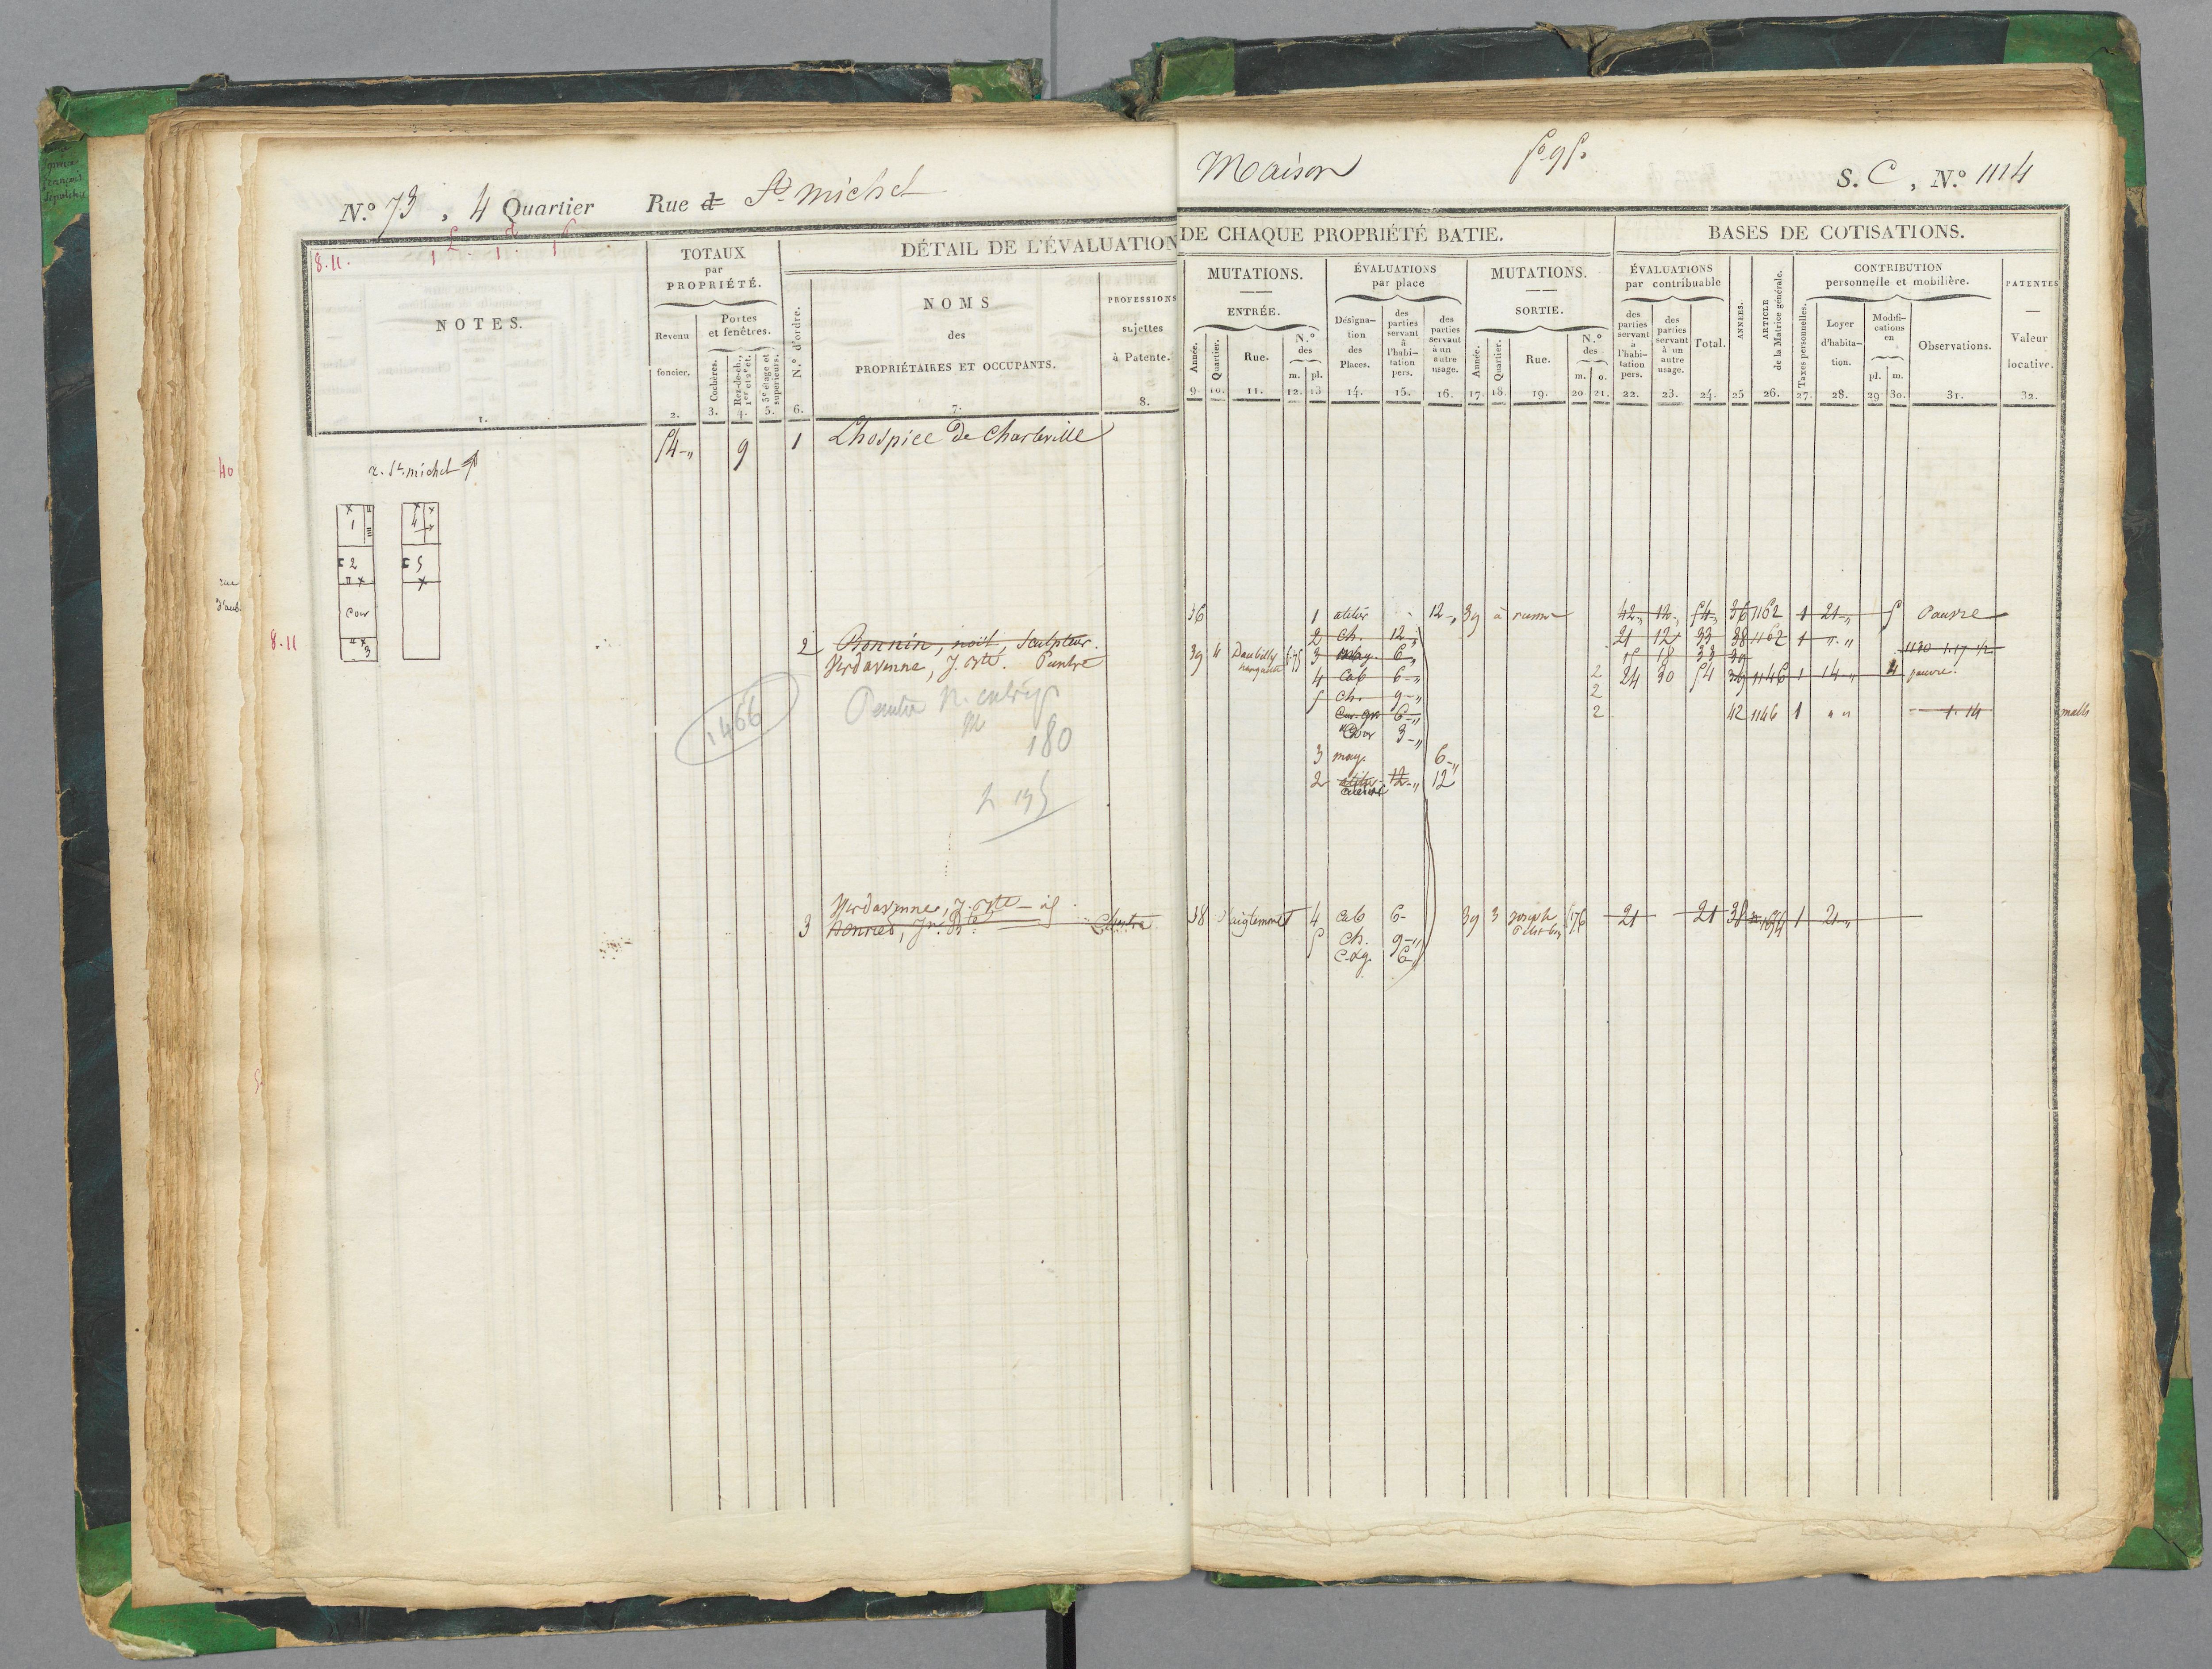 N.º 73, 4 Quartier Rue d St. michel
8.11.
NOTES.
1.
TOTAUX
par
PROPRIÉTÉ.
Revenu
foncier.
2.
Portes
et fenêtres.
Cochères.
3.
Rez-de-ch.,
1er et 2e ét.
4.
3e étage et
supérieurs.
5.
DÉTAIL DE L'ÉVALUATION
N.º d'ordre.
6.
NOMS
des
PROPRIÉTAIRES ET OCCUPANTS.
7.
PROFESSIONS
sujettes
à Patente.
8.
54-" 9 1 Lhospice de Charleville
40
r. St. michel
1
4
2
5
Cour
3
rue
d'aub.
8.11
2 Bonnin, noël, Sculpteur.
Verdavenne, J. Bte. Peintre
1466
Peintre n. entrep
180
195
Verdavenne, J. Bte
3
Maison
S. C, N.º 1114
DE CHAQUE PROPRIÉTÉ BATIE.
MUTATIONS.
ENTRÉE.
Année.
9.
Quartier.
10.
Rue.
11.
N.º
des
m. pl.
12. 13
ÉVALUATIONS
par place
Désigna-
tion
des
Places.
14.
des
parties
servant
à
l'habi-
tation
pers.
15.
des
parties
servant
à un
autre
usage.
16.
MUTATIONS.
SORTIE.
Année.
17.
Quartier.
18.
Rue.
19.
N.º
des
m. o.
20 21.
BASES DE COTISATIONS.
ÉVALUATIONS
par contribuable
des
parties
servant
à
l'habi-
tation
pers.
22.
des
parties
servant
à un
autre
usage.
23.
Total.
24.
ANNÉES.
25
ARTICLE
de la Matrice générale.
26.
CONTRIBUTION
personnelle et mobilière.
Taxes personnelles.
27.
Loyer
d'habita-
tion.
28.
Modifi-
cations
en
pl. m.
29 30.
Observations.
31.
PATENTES
Valeur
locative.
32.
36 1 atelier 12-" 39 42-" 12-" 54-" 36 1162 1 21-" 5 Pauvre
2 ch. 12-" 21 12 33 38 1162 1 "-"
39 4 Daubilly 3 mag. 6-" 15 18 33 39 1130 1.17 1/2
4 cab 6-" 2 24 30 54 39 1146 1 14-" 4 pauvre.
5 ch. 9-" 2
6-" 2 42 1146 1 " " 1.14
Cour 3-"
3 mag. 6-"
2 atelier 12-" 12
cuisine
38 d'aiglemont 4 cab 6- 39 3 Joseph 176 21 21 38 1 21-"
5 ch. 9-"
6-"